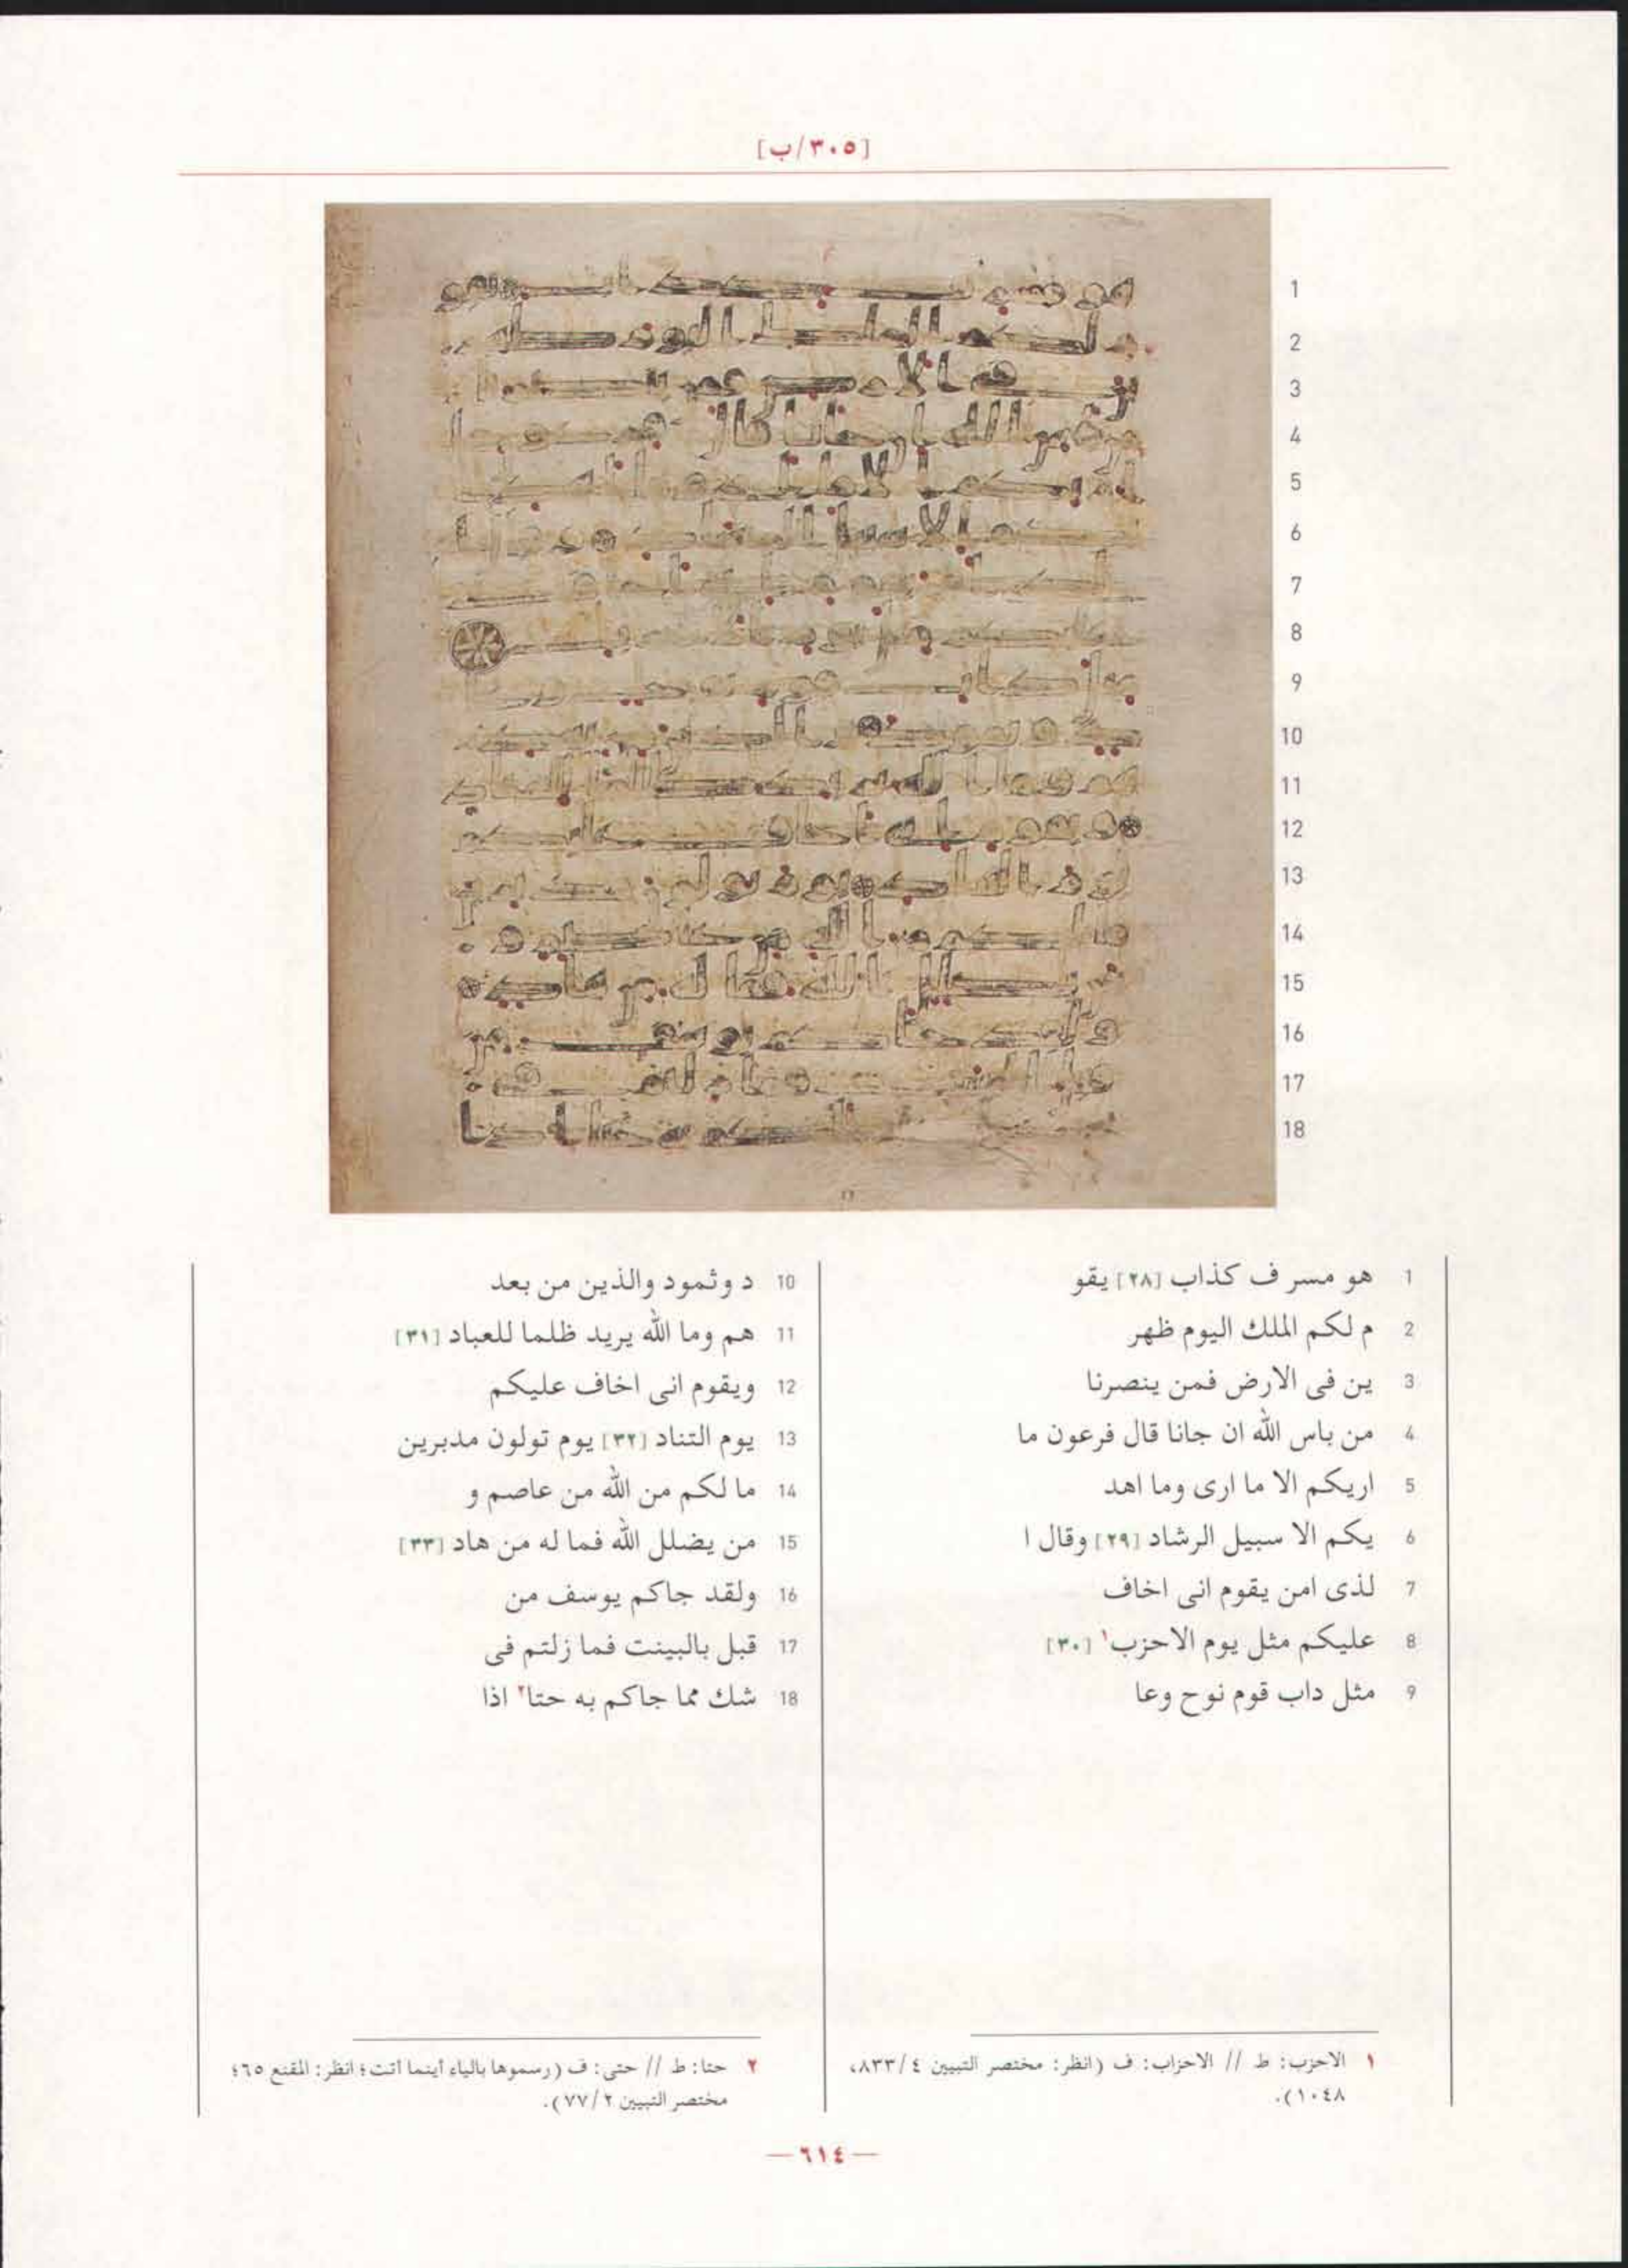 [٣٠٥/ب]
1
2
3
4
5
6
7
8
9
10
11
12
13
14
15
16
17
18
1 هو مسر ف كذاب [٢٨] يقو
2 م لكم الملك اليوم ظهر
3 ين فى الارض فمن ينصرنا
4 من باس الله ان جانا قال فرعون ما
5 اريكم الا ما ارى وما اهد
6 يكم الا سبيل الرشاد [٢٩] وقال ا
7 لذى امن يقوم انى اخاف
8 عليكم مثل يوم الاحزب١ [٣٠]
9 مثل داب قوم نوح وعا
10 د وثمود والذين من بعد
11 هم وما الله يريد ظلما للعباد [٣١]
12 ويقوم انى اخاف عليكم
13 يوم التناد [٣٢] يوم تولون مدبرين
14 ما لكم من الله من عاصم و
15 من يضلل الله فما له من هاد [٣٣]
16 ولقد جاكم يوسف من
17 قبل بالبينت فما زلتم فى
18 شك مما جاكم به حتا٢ اذا
١ الاحزب: ط // الاحزاب: ف (انظر: مختصر التبيين ٨٣٣/٤،
١٠٤٨).
٢ حتا: ط // حتى: ف (رسموها بالياء أينما أتت؛ انظر: المقنع ٦٥؛
مختصر التبيين ٧٧/٢).
— ٦١٤ —